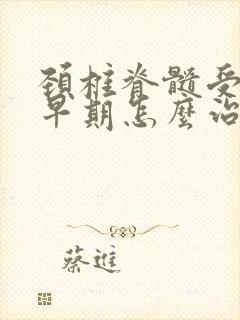 頚椎脊髓受
早期怎麼治
蔡進